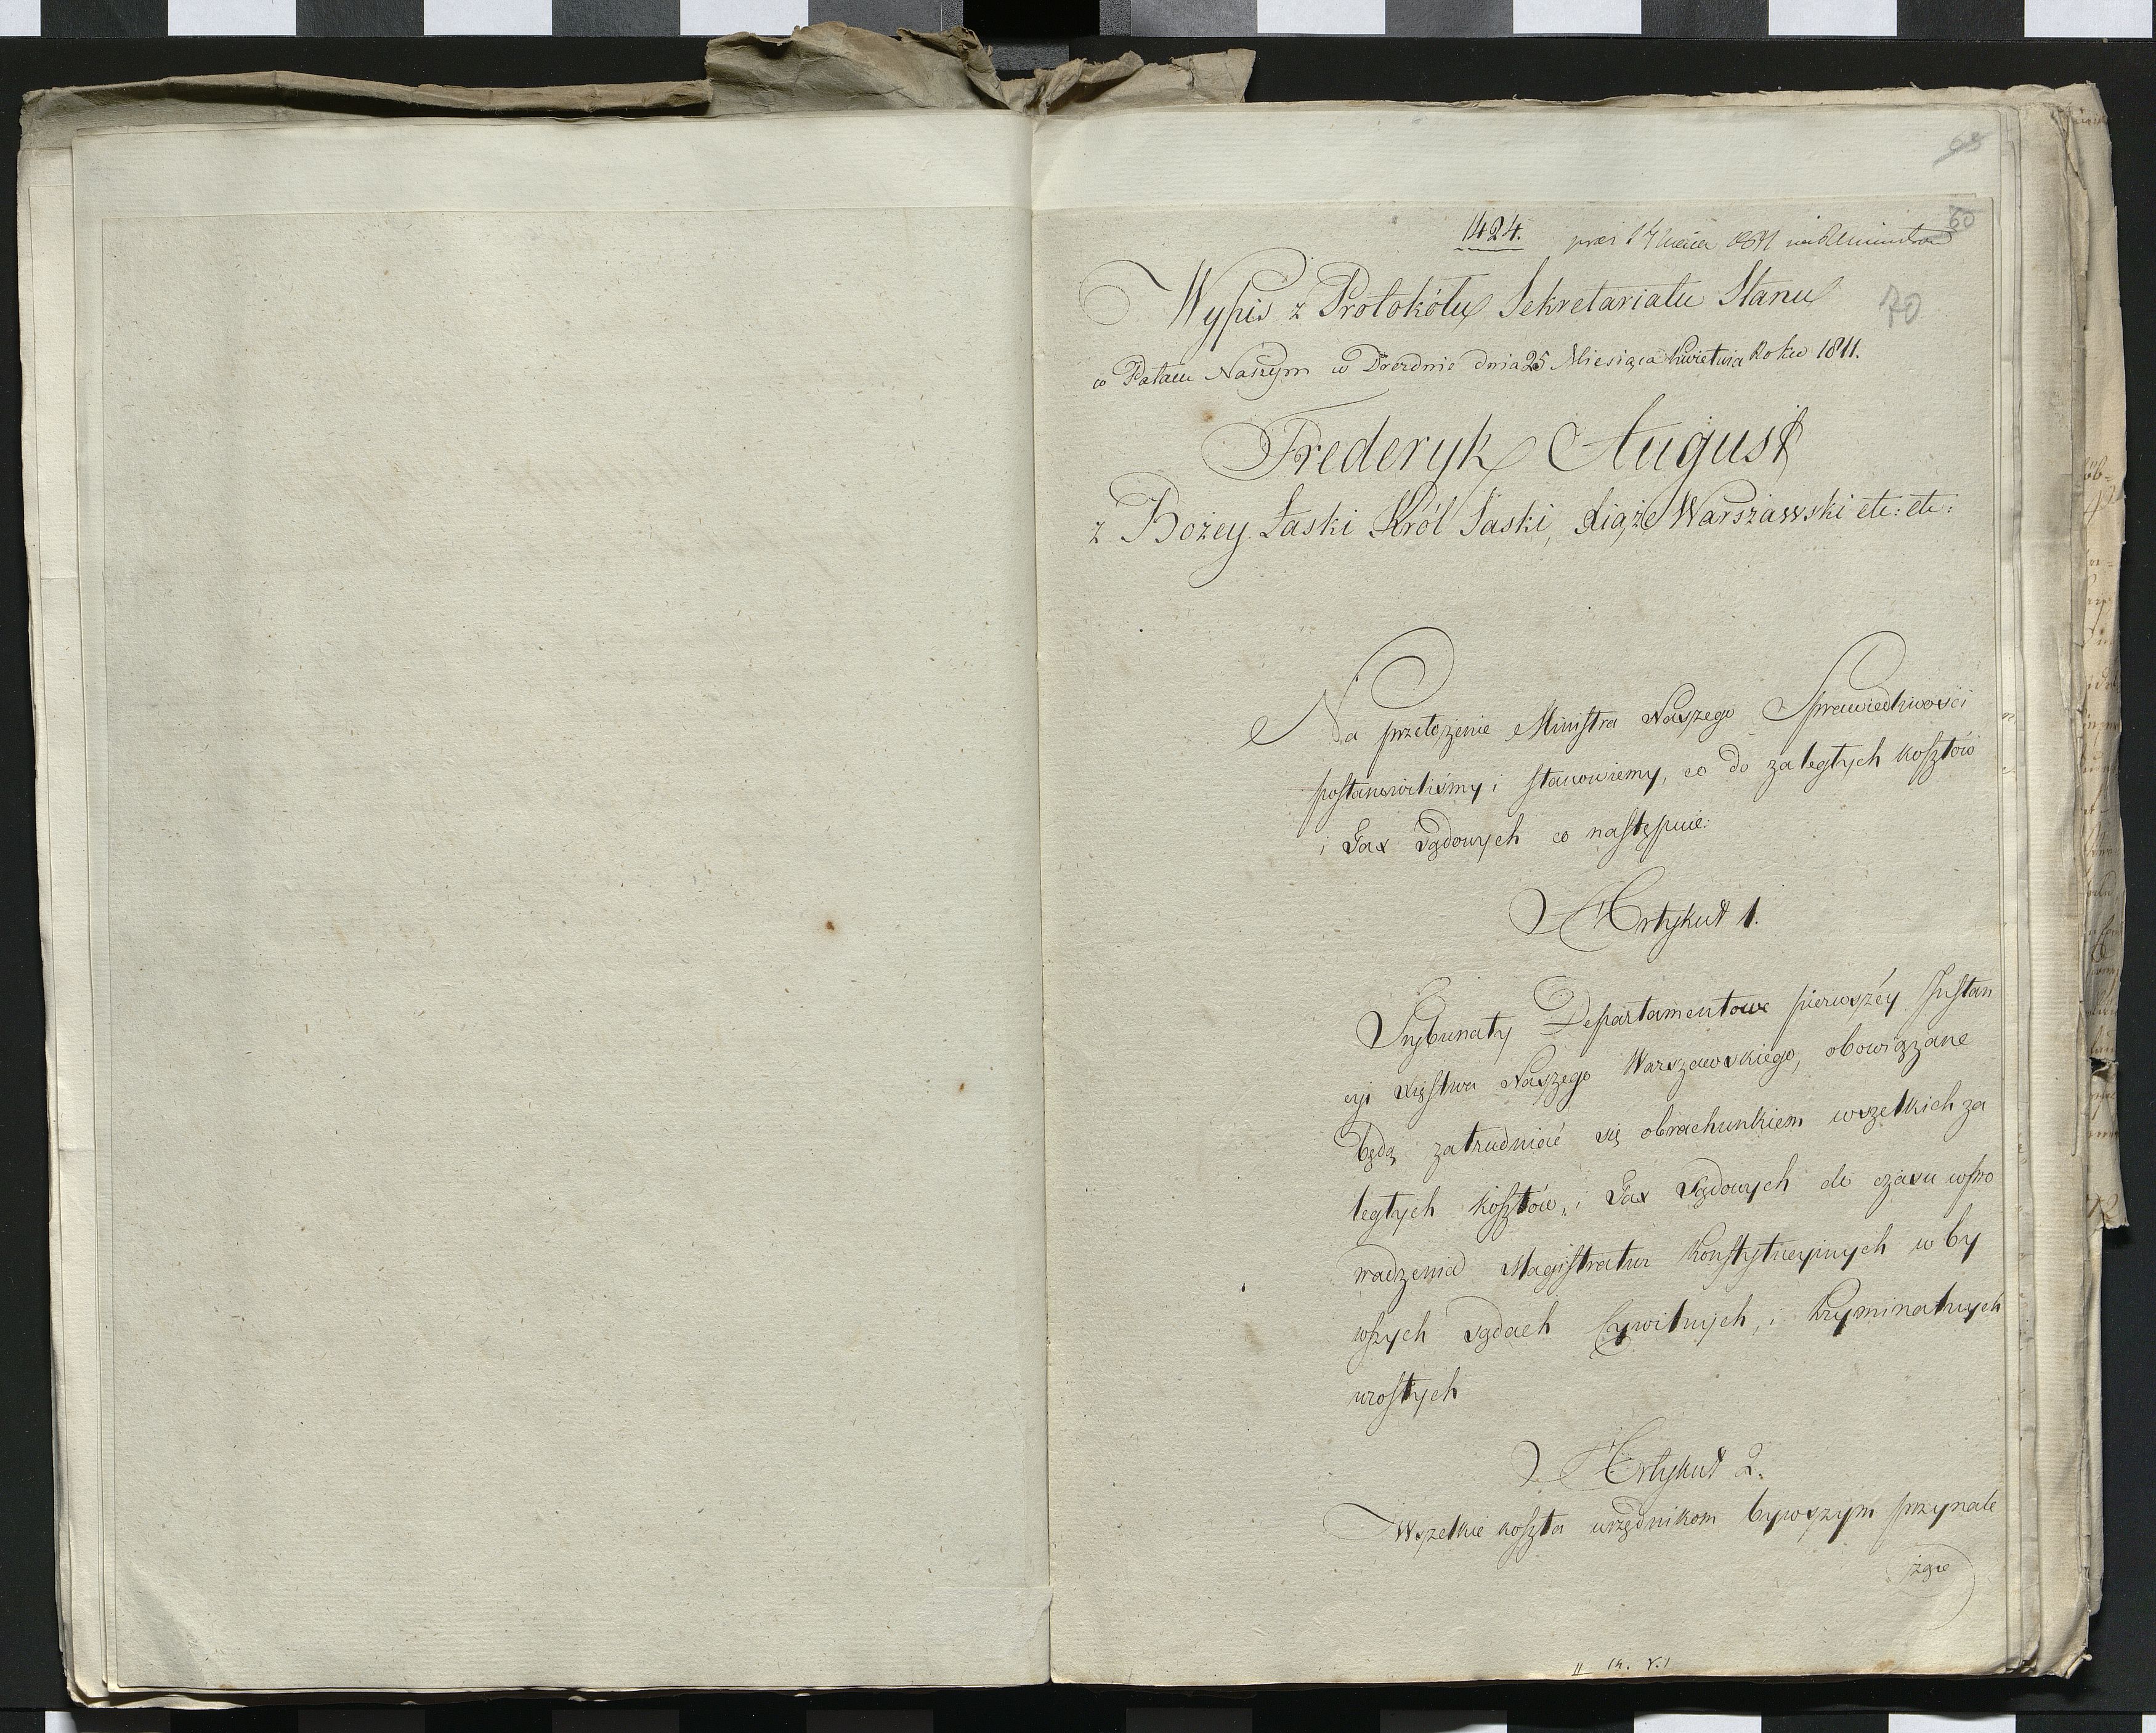 69
60
1424. pras 14 Maia 1811
Wypis z Protokółu Sekretariatu Stanu
70
w Pałacu Naszym w Dreźnie dnia 25 Miesiąca Kwietnia Roku 1811.
Frederyk August
z Bożey Łaski Król Saski, Xiąże Warszawski etc: etc:
Na przełożenie Ministra Naszego Sprawiedliwości
postanowiliśmy i stanowiemy, co do zaległych kosztów
i Tax Sądowych co następuie:
Artykuł 1.
Trybunały Departamentowe pierwszéy Instan
cyi Xięstwa Naszego Warszawskiego, obowiązane
będą zatrudnieć się obrachunkiem wszelkich za
ległych kosztów, i Tax Sądowych do czasu wpro
wadzenia Magistratur Konstytucyinych w by
wszych sądach Cywilnych, i Kryminalnych
urosłych
Artykuł 2.
Wszelkie koszta urzędnikom bywszym przynale
żące